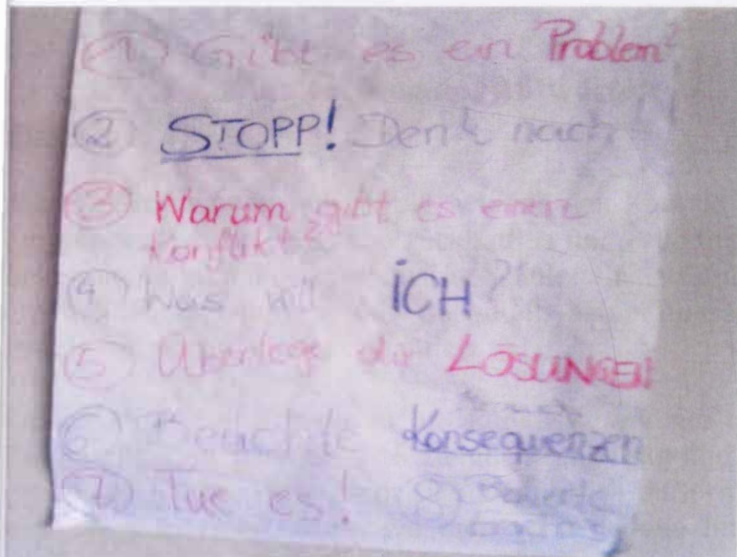 ① Gibt es ein Problem?
② STOPP! Denk nach!
③ Warum gibt es einen
Konflikt?
④ Was will ICH?
⑤ Überlege dir LÖSUNGEN
⑥ Beachte Konsequenzen
⑦ Tue es! ⑧ Bewerte